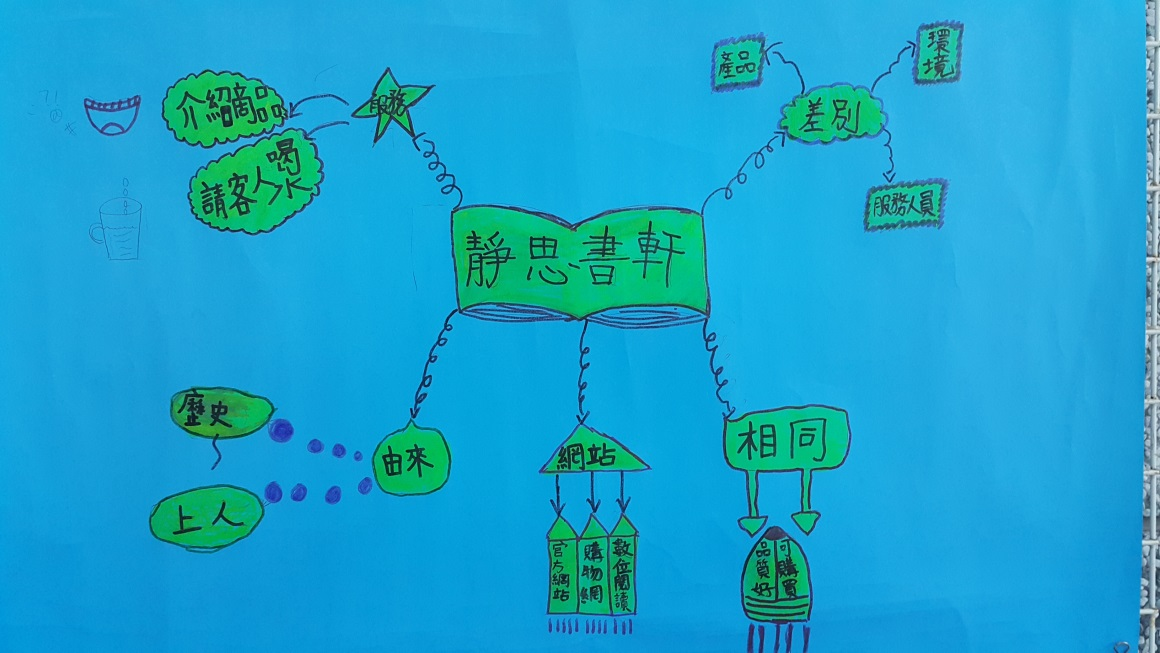 靜思書軒
服務
介紹商品
請客人喝水
差別
產品
環境
服務人員
由來
歷史
上人
網站
官方網站
購物網
數位閱讀
相同
品質好
可購買